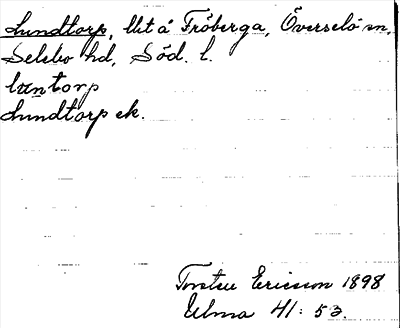 Lundtorp, lht å Fröberga, Överselö sn,
Selebo hd, Söd. l.
lun̄torp
Lundtorp ek.
Torsten Ericsson 1898
Ulma 41: 53.